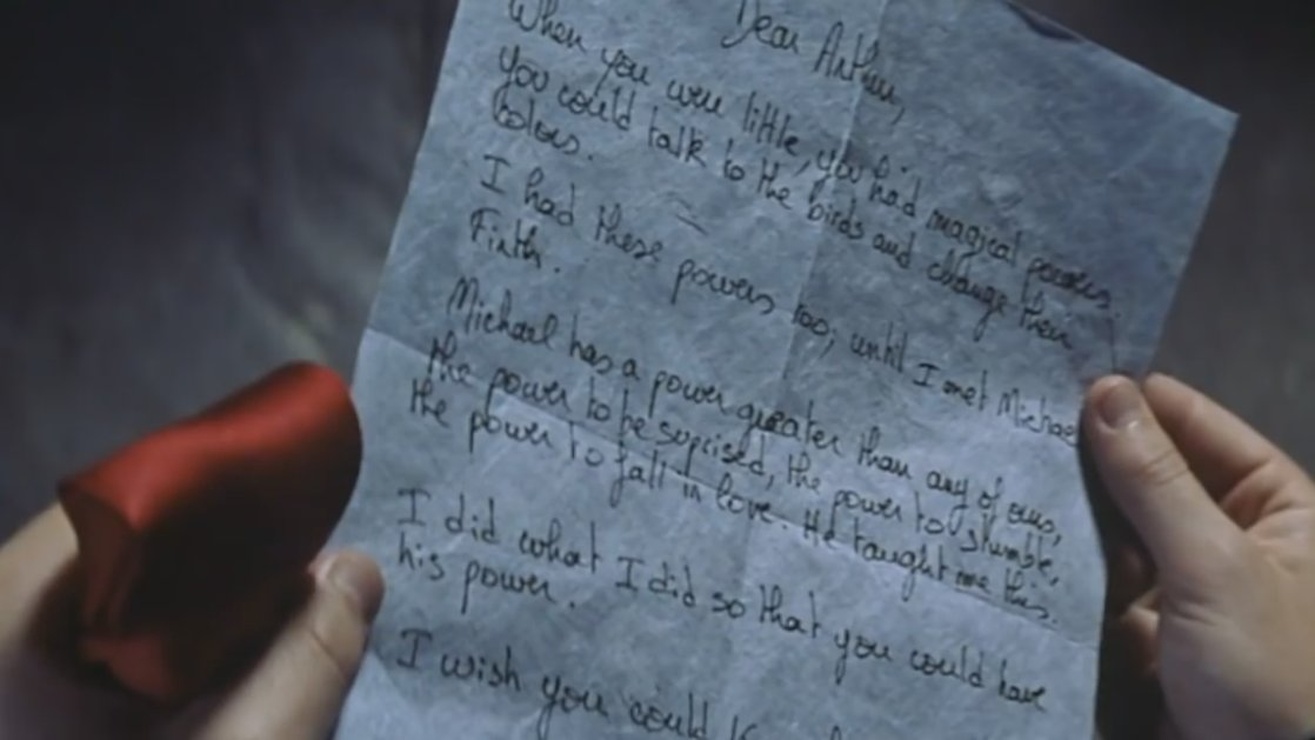 Dear Arthur,
When you were little, you had magical powers.
You could talk to the birds and change their
colors.
I had these powers too, until I met Michael
Firth.
Michael has a power greater than any of ours,
the power to be suprised, the power to stumble,
the power to fall in love. He taught me this.
I did what I did so that you could have
his power.
I wish you could